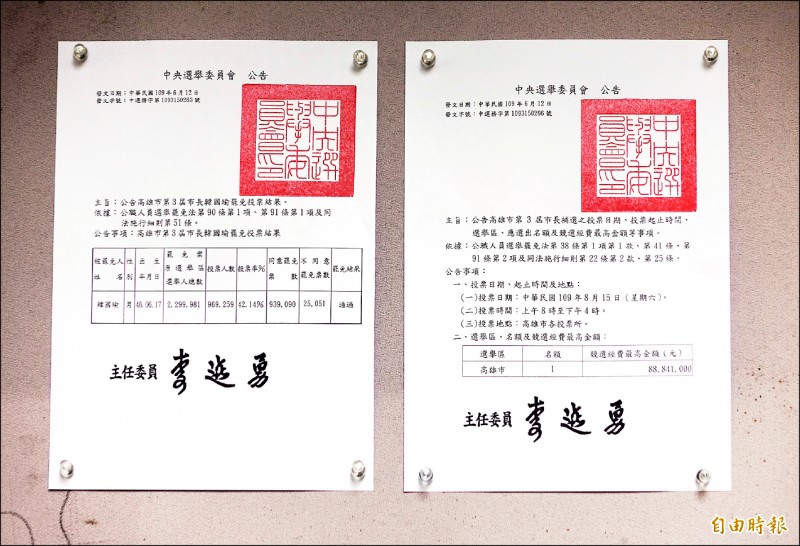 中央選舉委員會　公告
發文日期：中華民國109年6月12日
發文字號：中選務字第1093150283號
中央選舉委員會印
主旨：公告高雄市第3屆市長韓國瑜罷免投票結果。
依據：公職人員選舉罷免法第90條第1項、第91條第1項及同
法施行細則第51條。
公告事項：高雄市第3屆市長韓國瑜罷免投票結果
被罷免人姓名 性別 出生年月日 罷免案原選舉區選舉人總數 投票人數 投票率% 同意罷免票數 不同意罷免票數 罷免結果
韓國瑜 男 46.06.17 2,299,981 969,259 42.14% 939,090 25,051 通過
主任委員 李進勇
中央選舉委員會　公告
發文日期：中華民國109年6月12日
發文字號：中選務字第1093150296號
中央選舉委員會印
主旨：公告高雄市第3屆市長補選之投票日期、投票起止時間、
選舉區、應選出名額及競選經費最高金額等事項。
依據：公職人員選舉罷免法第38條第1項第1款、第41條、第
91條第2項及同法施行細則第22條第2款、第25條。
公告事項：
一、投票日期、起止時間及地點：
(一)投票日期：中華民國109年8月15日（星期六）。
(二)投票時間：上午8時至下午4時。
(三)投票地點：高雄市各投票所。
二、選舉區、名額及競選經費最高金額：
選舉區 名額 競選經費最高金額（元）
高雄市 1 88,841,000
主任委員 李進勇
自由時報